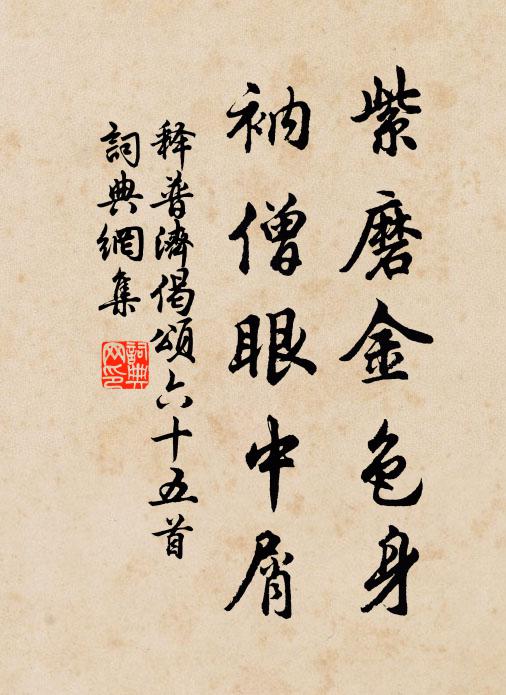 紫磨金色身
衲僧眼中屑
释普濟偈頌六十五首
詞典網集
詞典網印